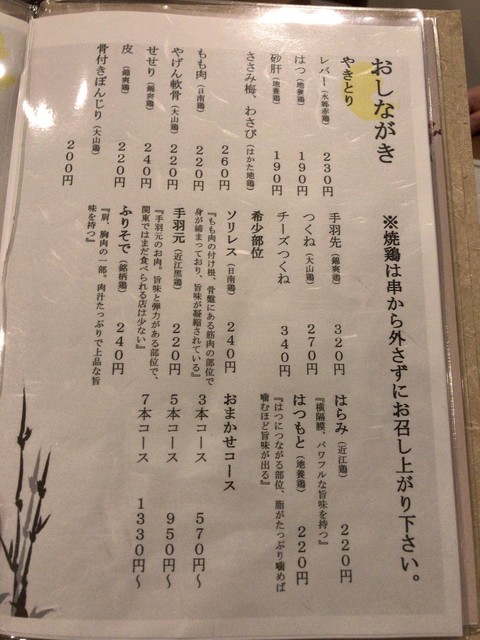 おしながき
※焼鶏は串から外さずにお召し上がり下さい。
やきとり
レバー（水郷赤鶏） 230円
はつ（地養鶏） 190円
砂肝（地養鶏） 190円
ささみ梅、わさび（はかた地鶏） 260円
もも肉（日南鶏） 220円
やげん軟骨（大山鶏） 220円
せせり（錦爽鶏） 240円
皮（錦爽鶏） 220円
骨付きぼんじり（大山鶏） 200円
手羽先（錦爽鶏） 320円
つくね（大山鶏） 270円
チーズつくね 340円
希少部位
ソリレス（日南鶏） 240円
『もも肉の付け根、骨盤にある筋肉の部位で
身が締まっており、旨味が凝縮されている』
手羽元（近江黒鶏） 220円
『手羽元のお肉。旨味と弾力がある部位で、
関東ではまだ食べられる店は少ない』
ふりそで（銘柄鶏） 240円
『肩、胸肉の一部。肉汁たっぷりで上品な旨
味を持つ』
はらみ（近江鶏） 220円
『横隔膜、パワフルな旨味を持つ』
はつもと（地養鶏） 220円
『はつにつながる部位、脂がたっぷり噛めば
噛むほど旨味が出る』
おまかせコース
3本コース 570円～
5本コース 950円～
7本コース 1330円～